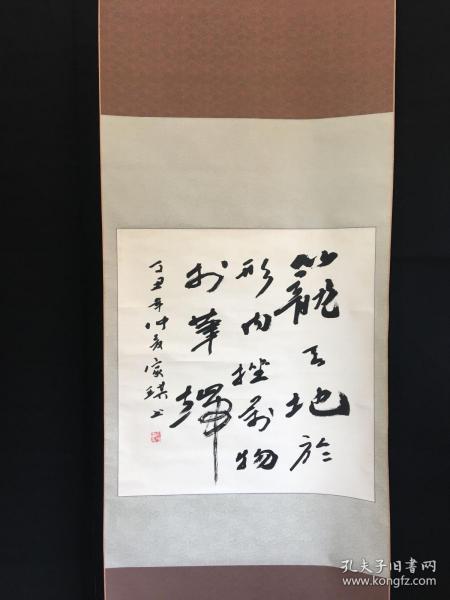 籠天地於
形内挫萬物
於筆端
丁丑年仲夏家琪书
孔夫子旧书网
www.kongfz.com